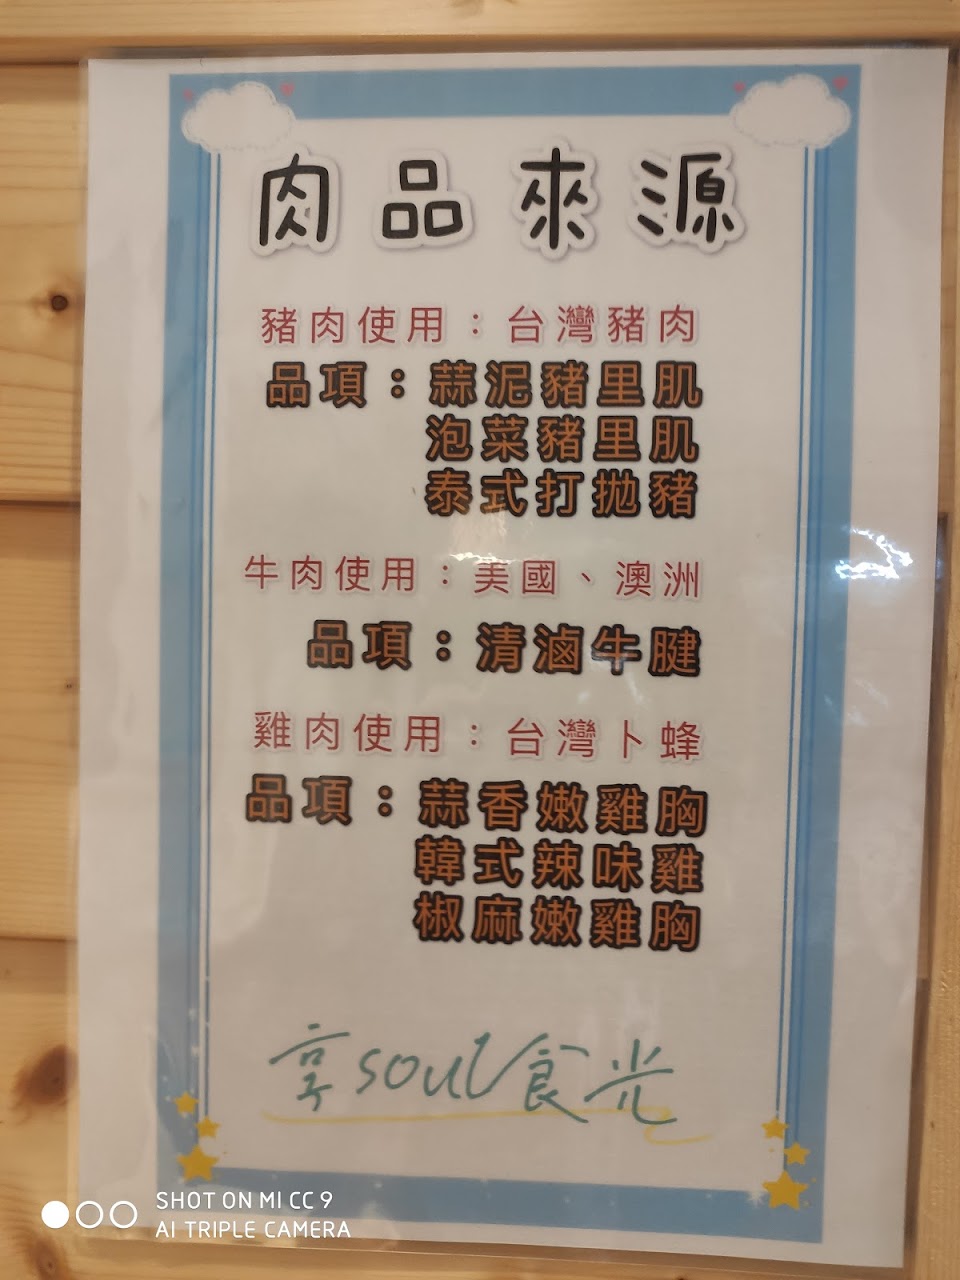 肉品來源
豬肉使用：台灣豬肉
品項：蒜泥豬里肌
泡菜豬里肌
泰式打拋豬
牛肉使用：美國、澳洲
品項：清滷牛腱
雞肉使用：台灣卜蜂
品項：蒜香嫩雞胸
韓式辣味雞
椒麻嫩雞胸
享soul食光
SHOT ON MI CC 9
AI TRIPLE CAMERA